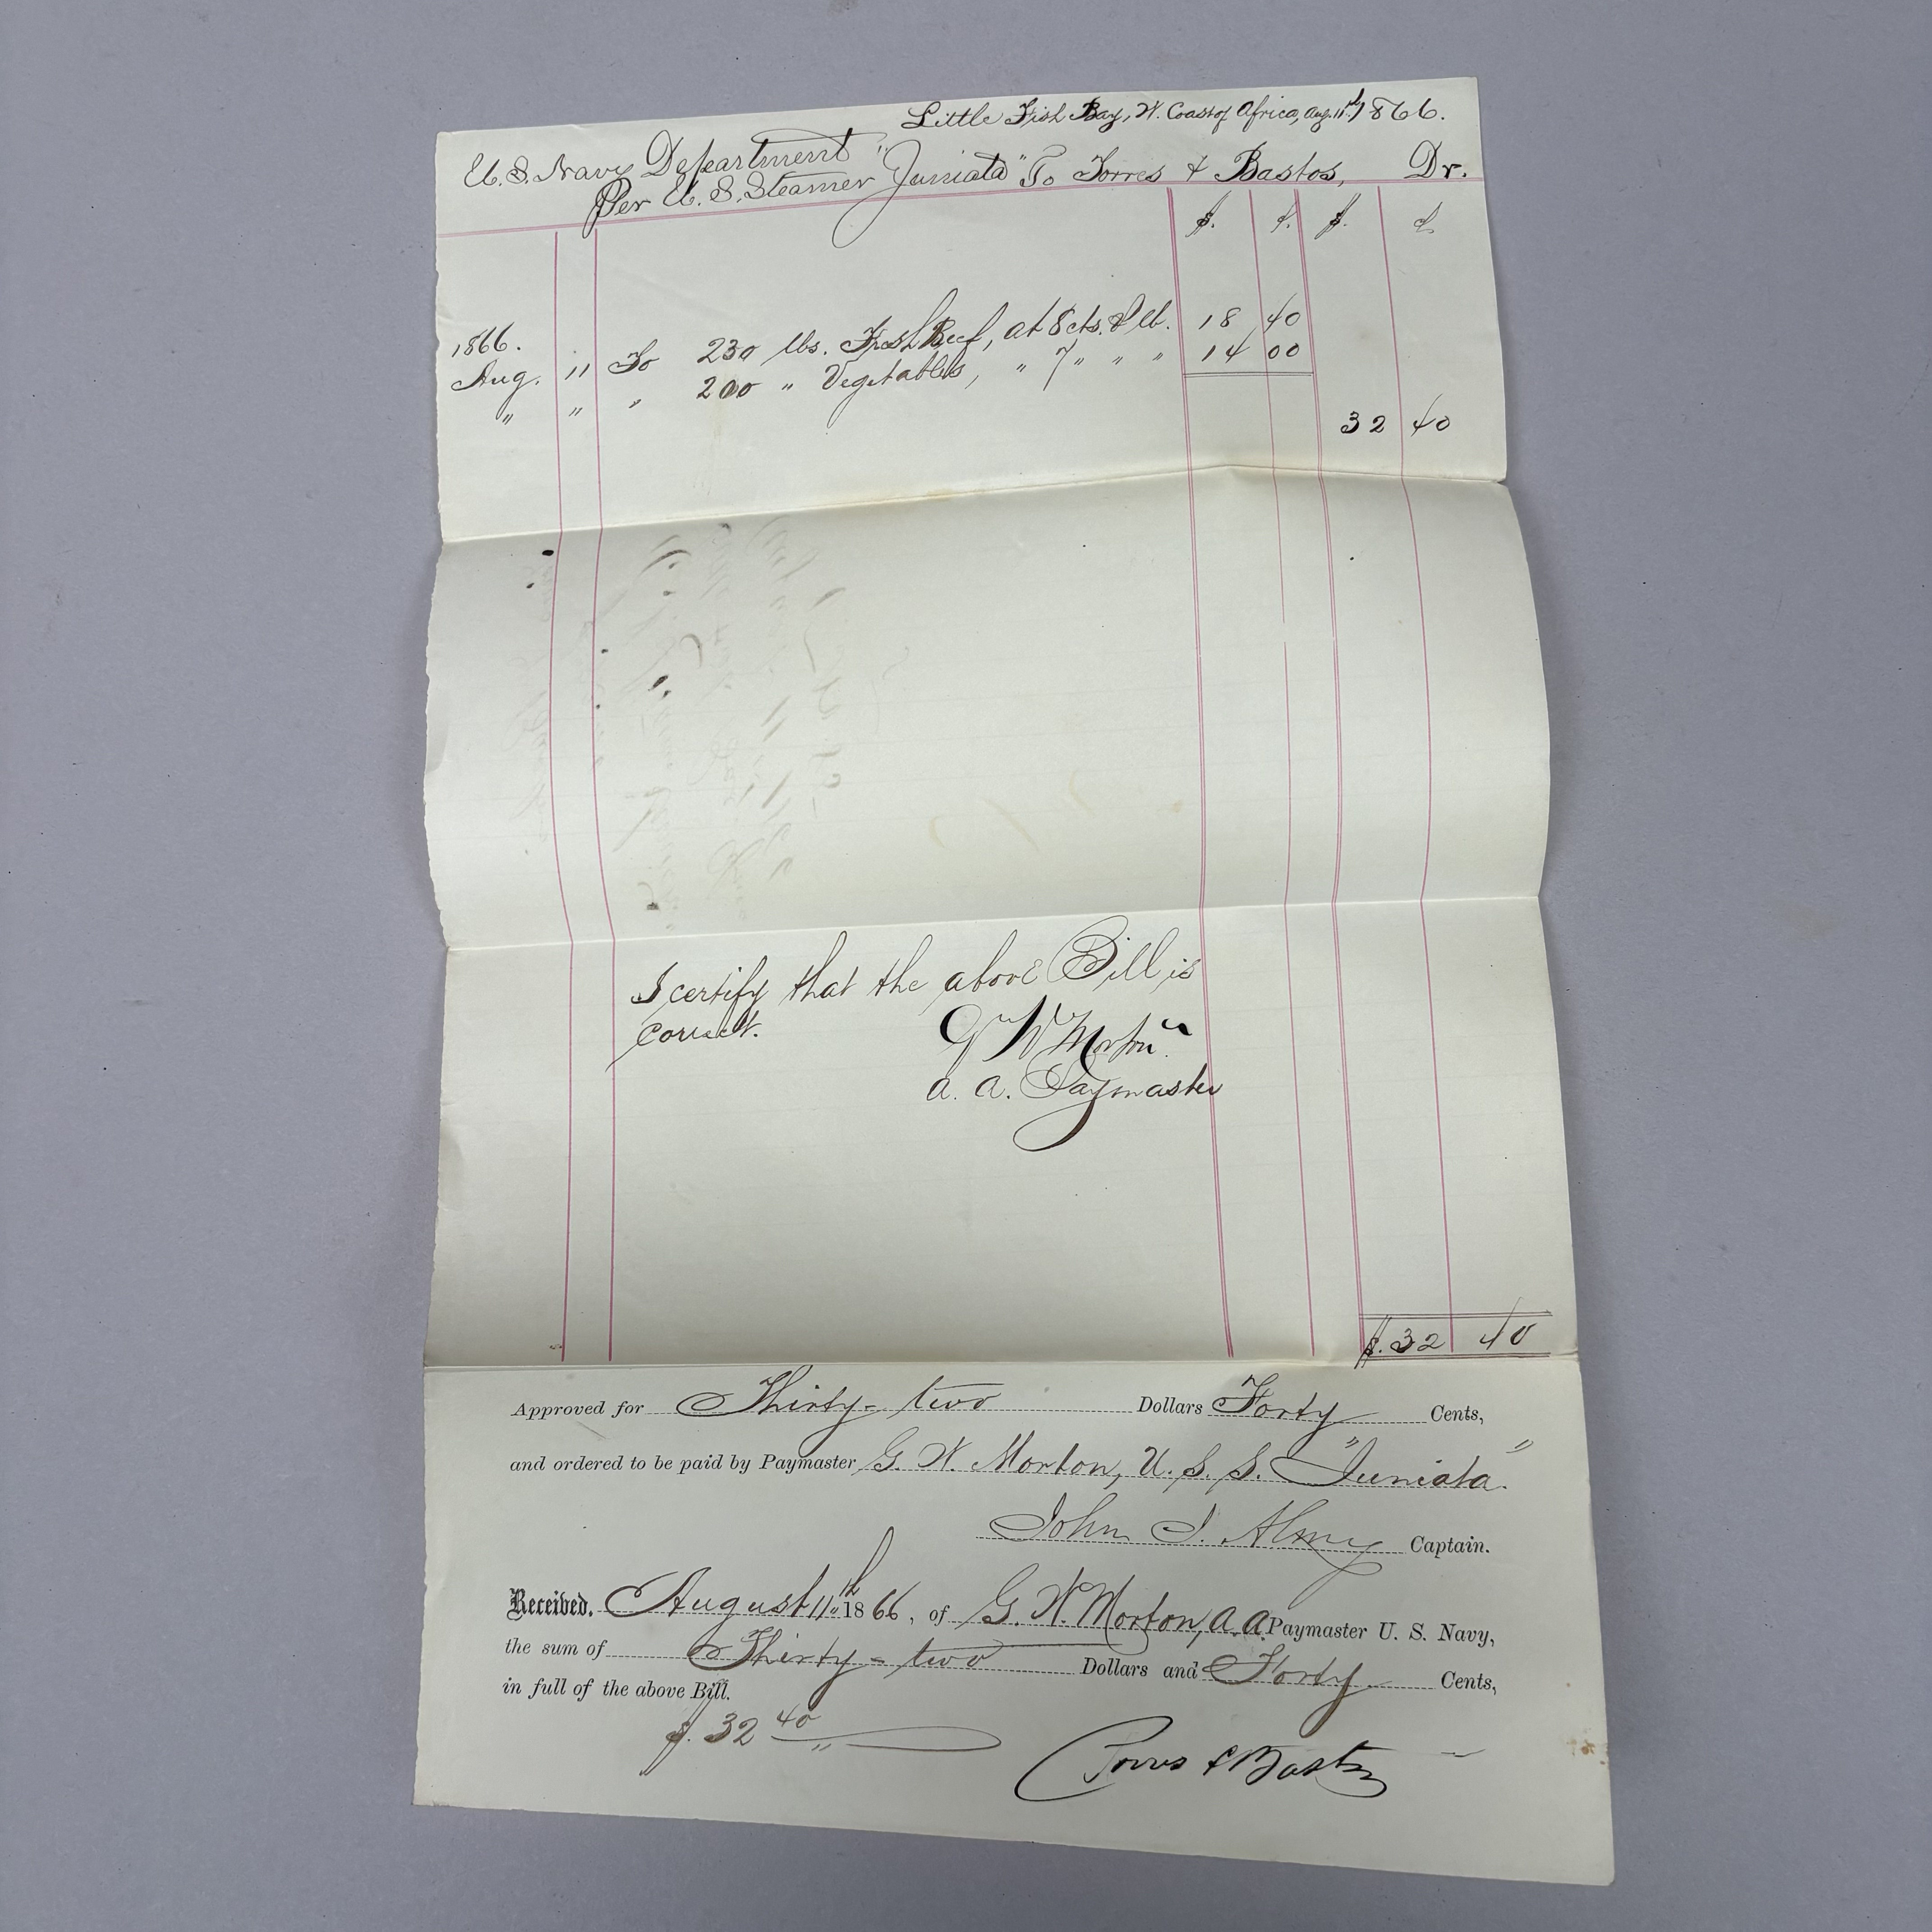 Little Fish Bay, W. Coast of Africa, Aug. 11th, 1866.
U. S. Navy Department
Per U. S. Steamer "Juniata" To Torres & Bastos, Dr.
$. ¢. $. ¢
1866.
Aug. 11 To 230 lbs. Fresh Beef, at 8 cts. ℔ lb. 18 40
" " " 200 " Vegetables, " 7 " " " 14 00
32 40
I certify that the above Bill is
correct.
G W Morton
A. A. Paymaster
$. 32 40
Approved for Thirty-two Dollars Forty Cents,
and ordered to be paid by Paymaster G. W. Morton, U. S. S. "Juniata."
John J. Almy Captain.
Received, August 11th 1866, of G. W. Morton, A. A. Paymaster U. S. Navy,
the sum of Thirty-two Dollars and Forty Cents,
in full of the above Bill.
$. 32 40
Torres & Bastos